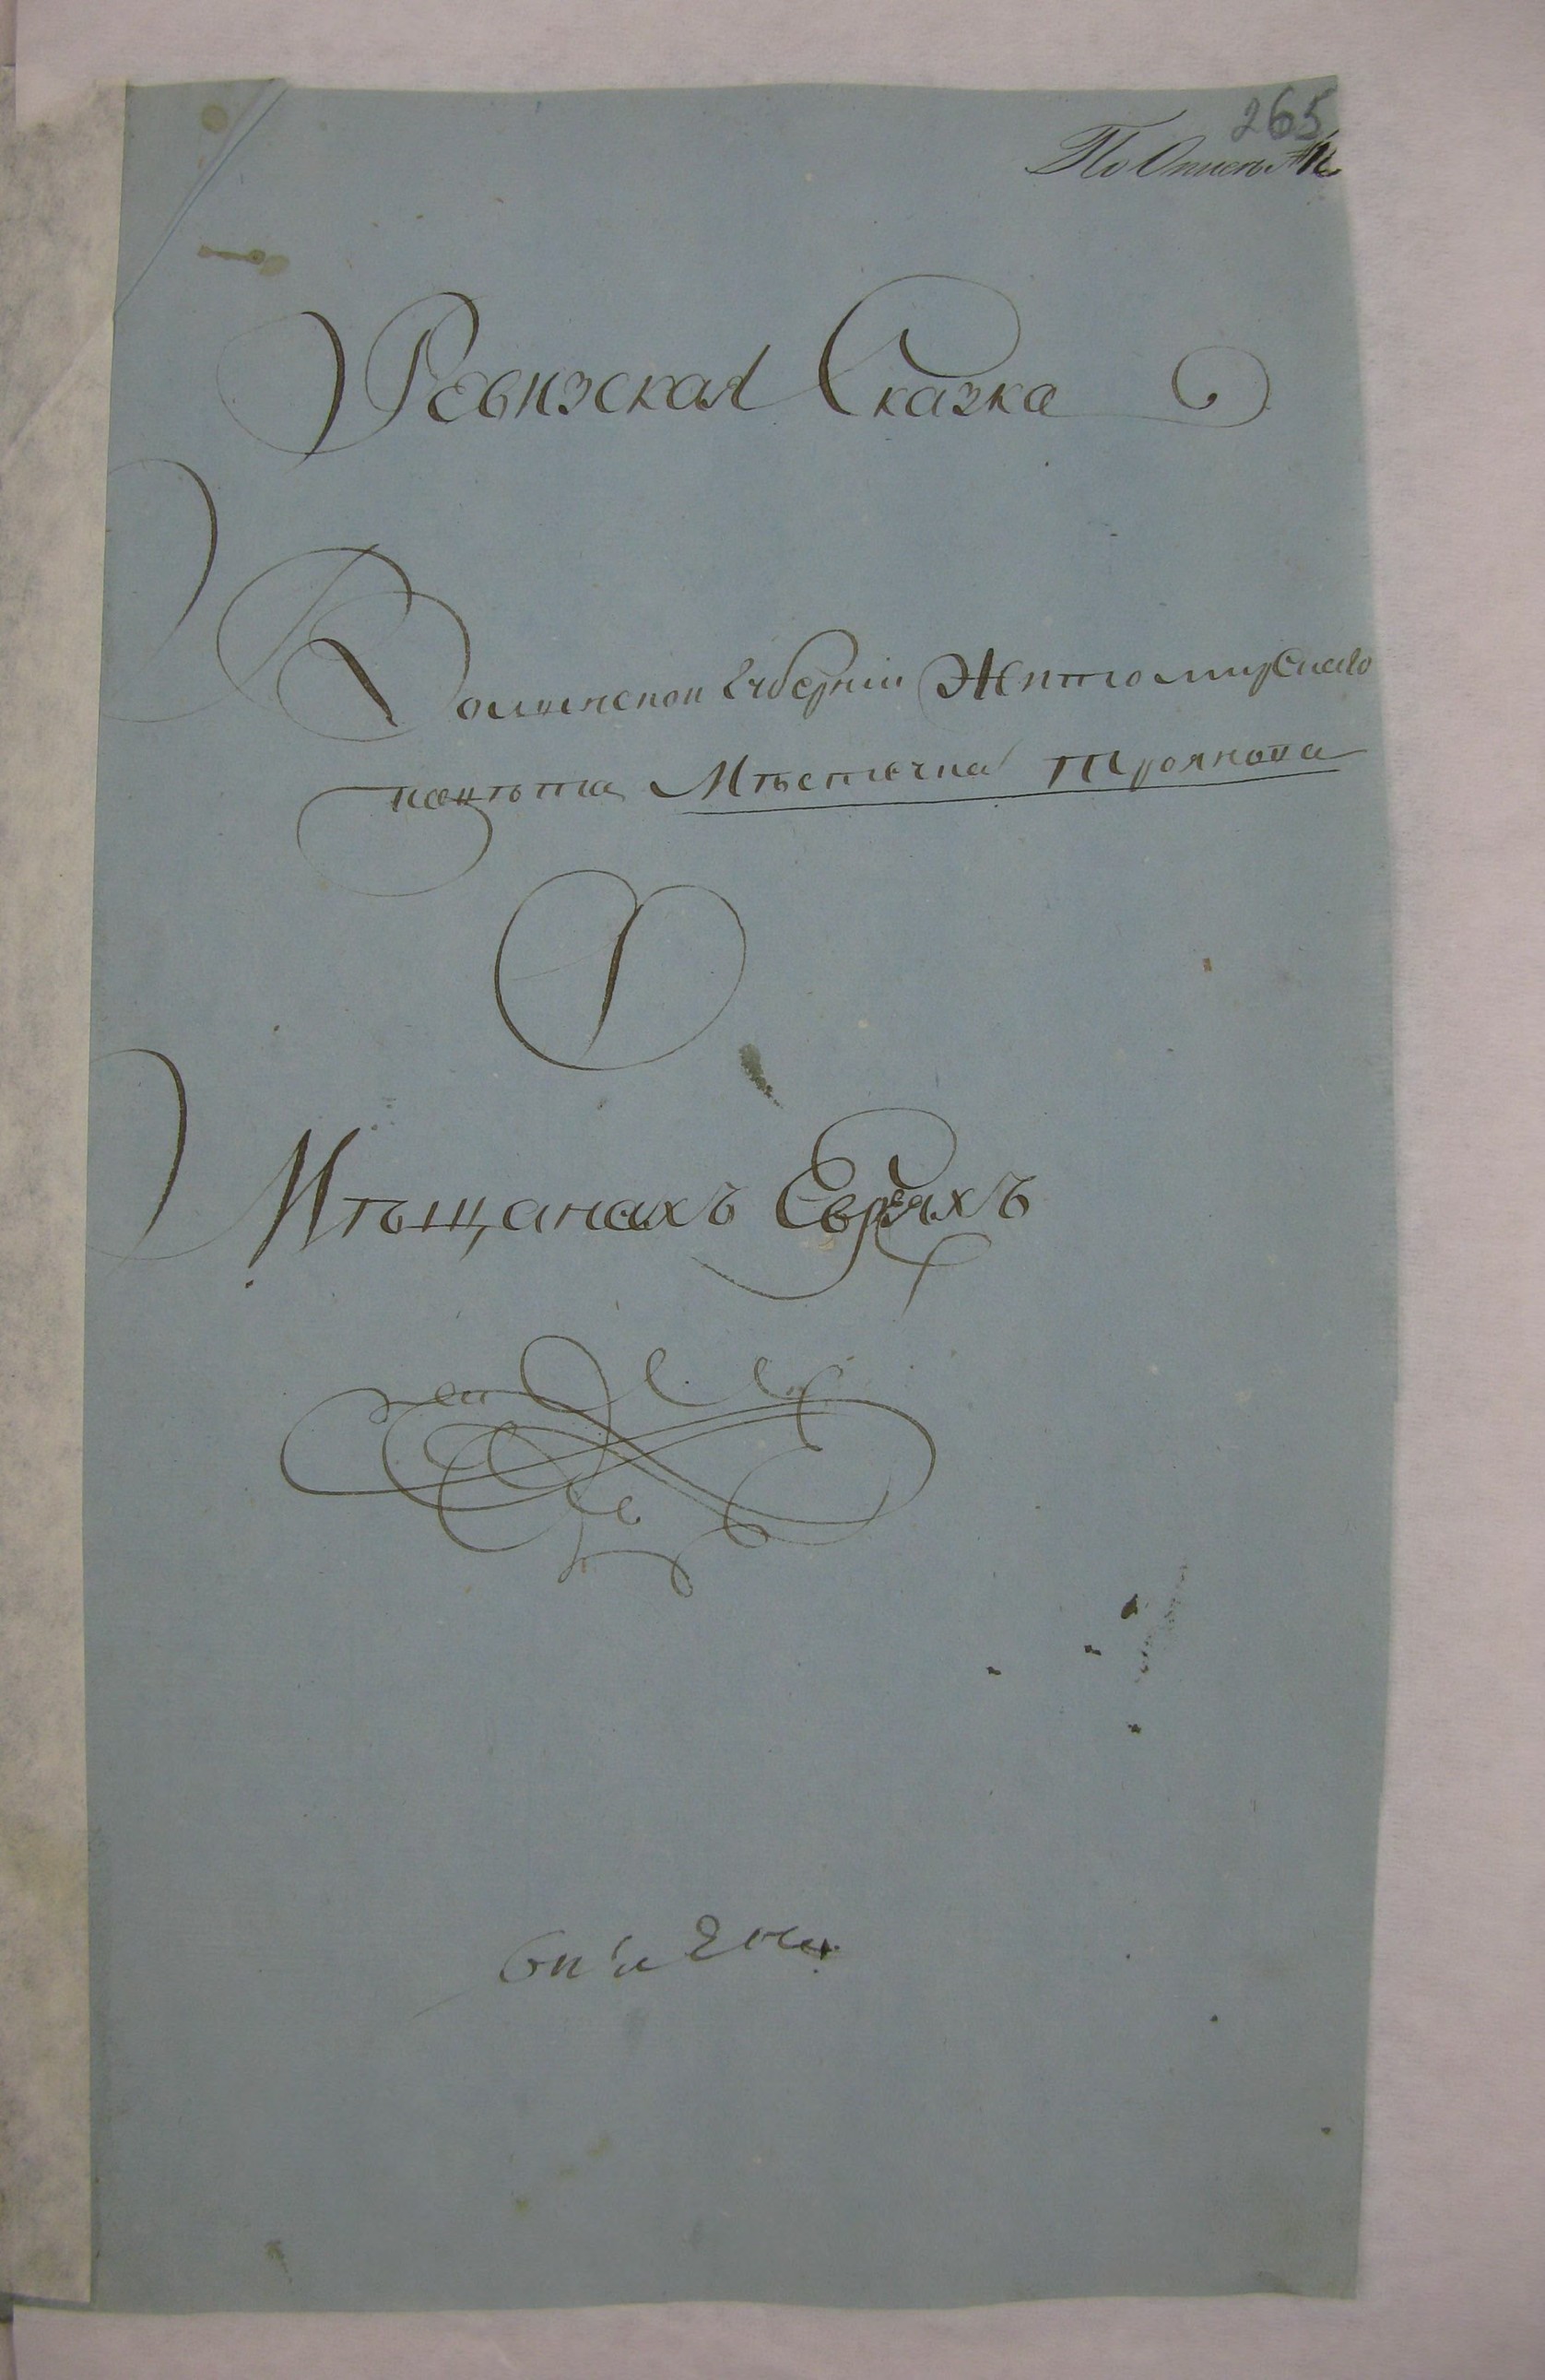 265
По Описи №
Ревизская Сказка
Волынской Губернии Житомирскаго
повѣта Мѣстечка Троянова
О
Мѣщанахъ Евреяхъ